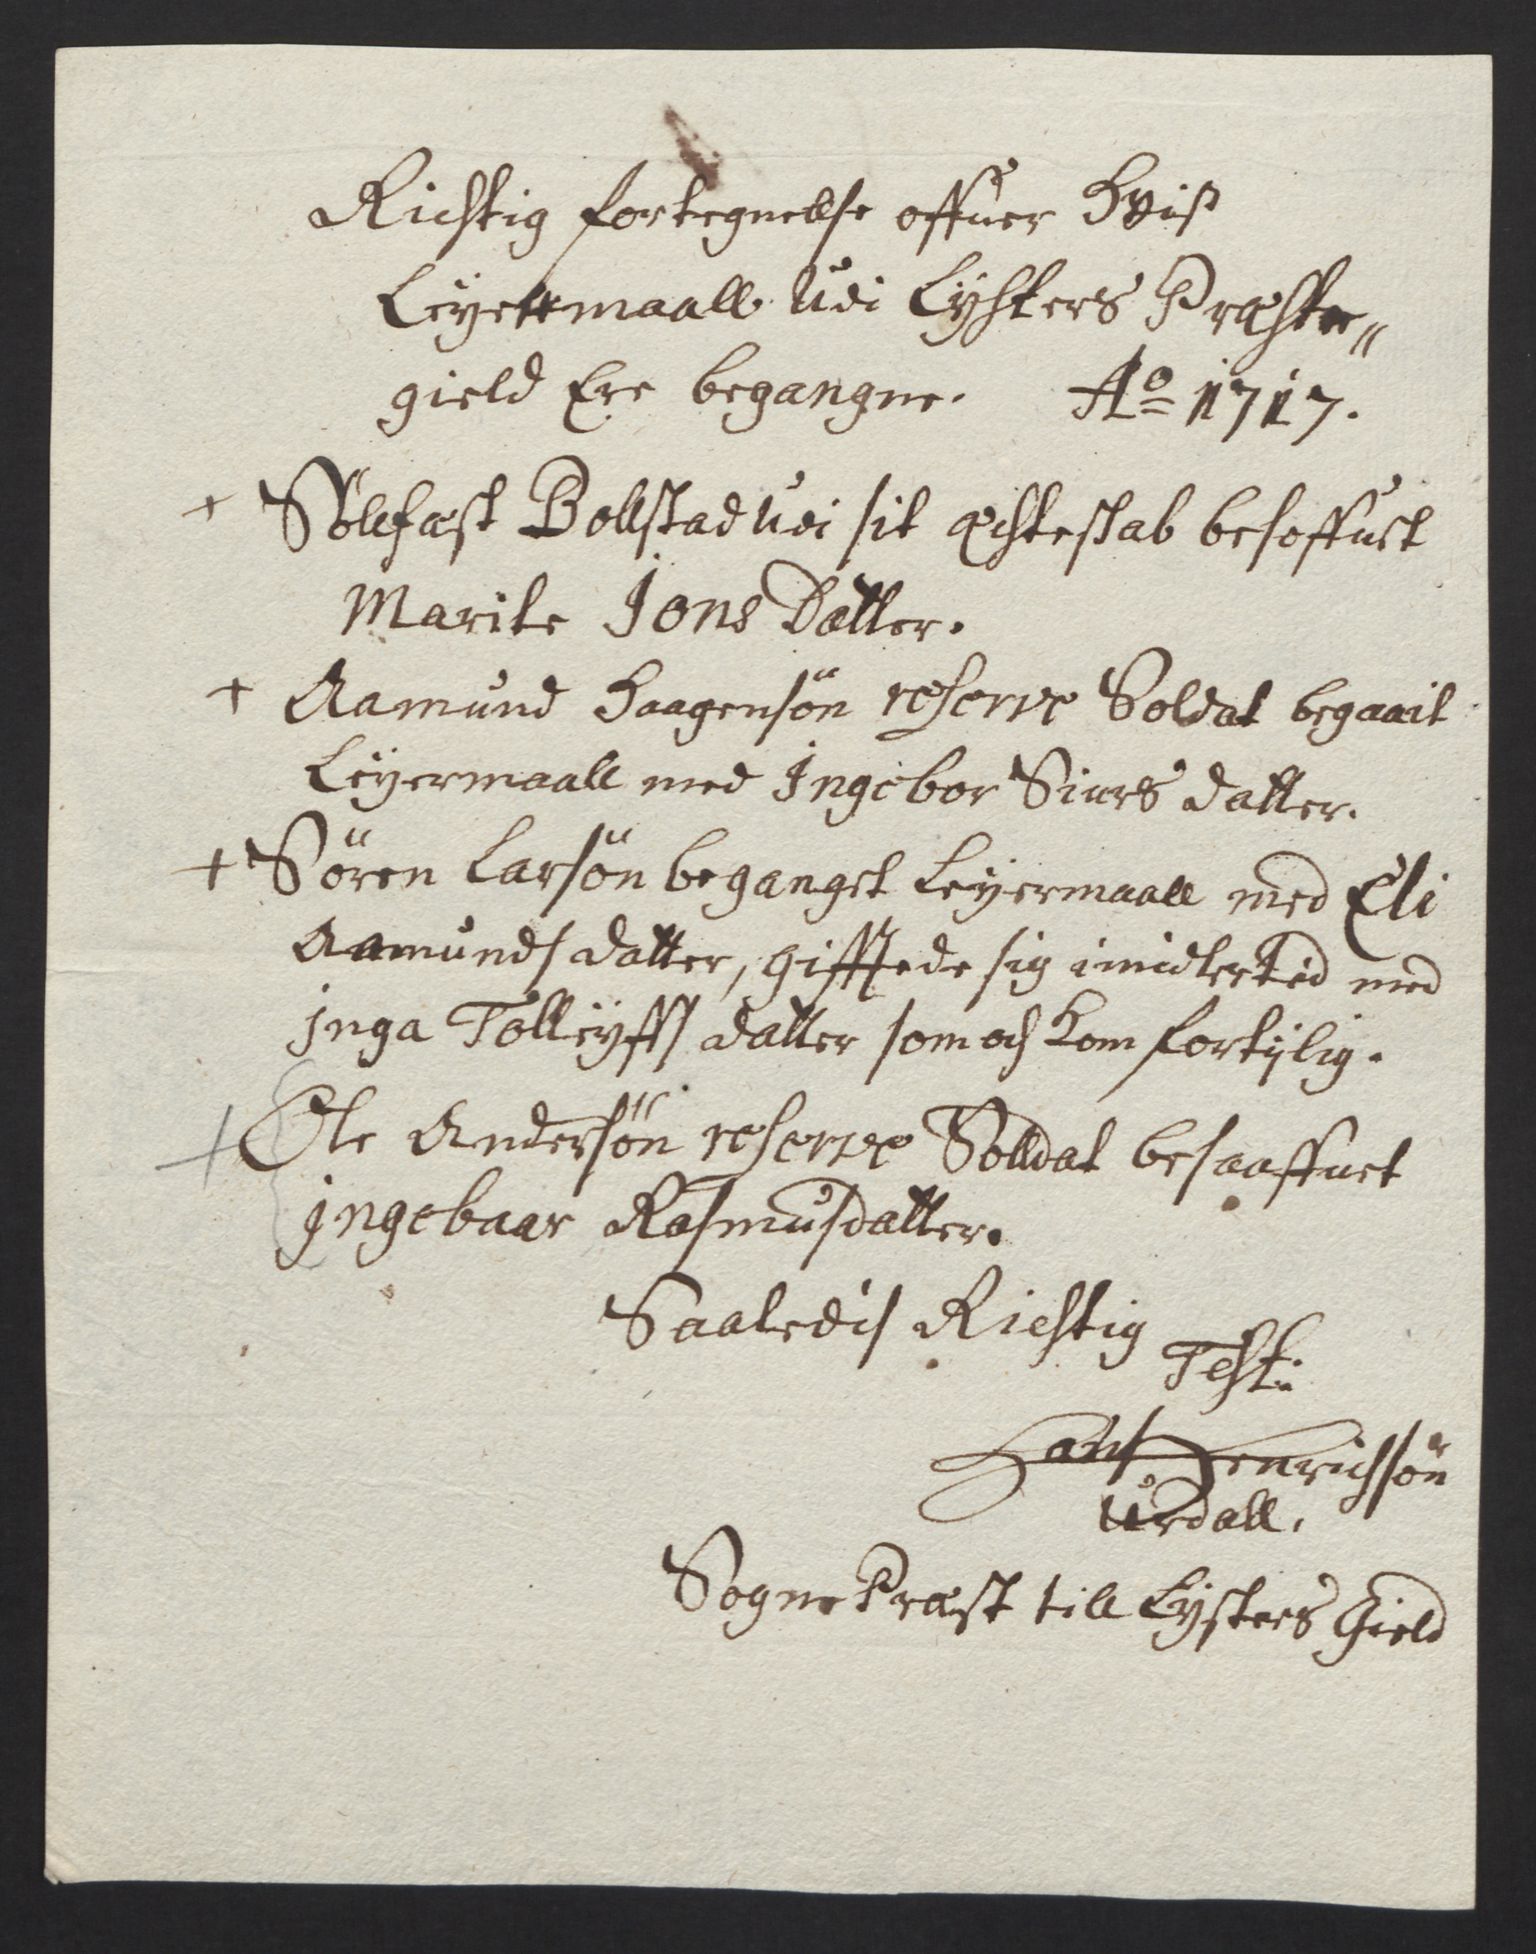 Richtig fortegnellse offuer Hviß
Leyermaall Udi Lysters Præste„
gield Ere begangne. Ao 1717.
+ Söllfæst Bollstad Udi sit æchteskab besoffuet
Marite Jons Datter.
+ Aamund Haagensön reserve Soldat begaait
Leyermaall med Ingebor Siurs datter.
+ Sören Larsön beganget Leyermaall med Eli
Aamunds datter, gifftede sig imidlertid med
Inga Tolleyffs datter som och kom fortylig.
+ Ole Andersön reserve Solldat besaaffuet
Ingebaar Rasmusdatter.
Saaledis Richtig
Test:
Hans Henrichsön
Urdall.
Sogne Præst till Lysters Gield